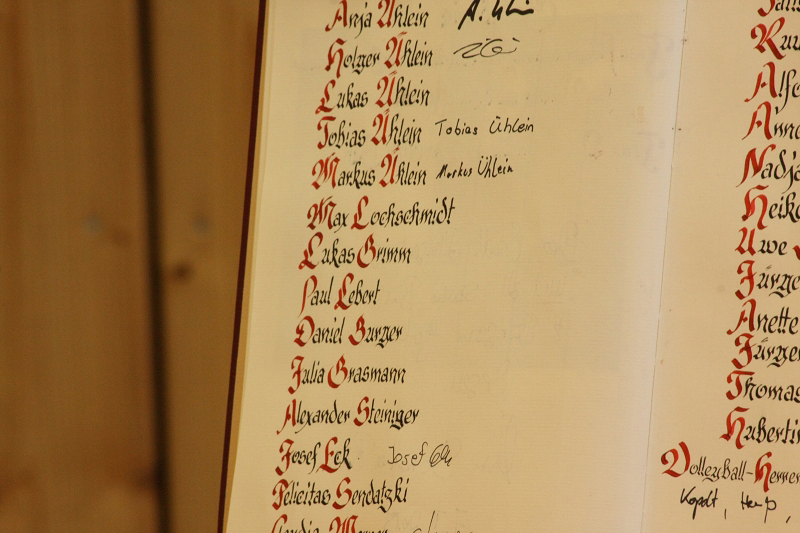 Anja Ühlein A. Uhl
Holger Ühlein
Lukas Ühlein
Tobias Ühlein Tobias Ühlein
Markus Ühlein Markus Ühlein
Max Lochschmidt
Lukas Grimm
Paul Lebert
Daniel Burger
Julia Grasmann
Alexander Steiniger
Josef Eck Josef Eck
Felicitas Sendatzki
Alfo
Anne
Nadja
Heiko
Uwe
Jürge
Anette
Jürge
Thomas
Huberti
Volleyball-Herren